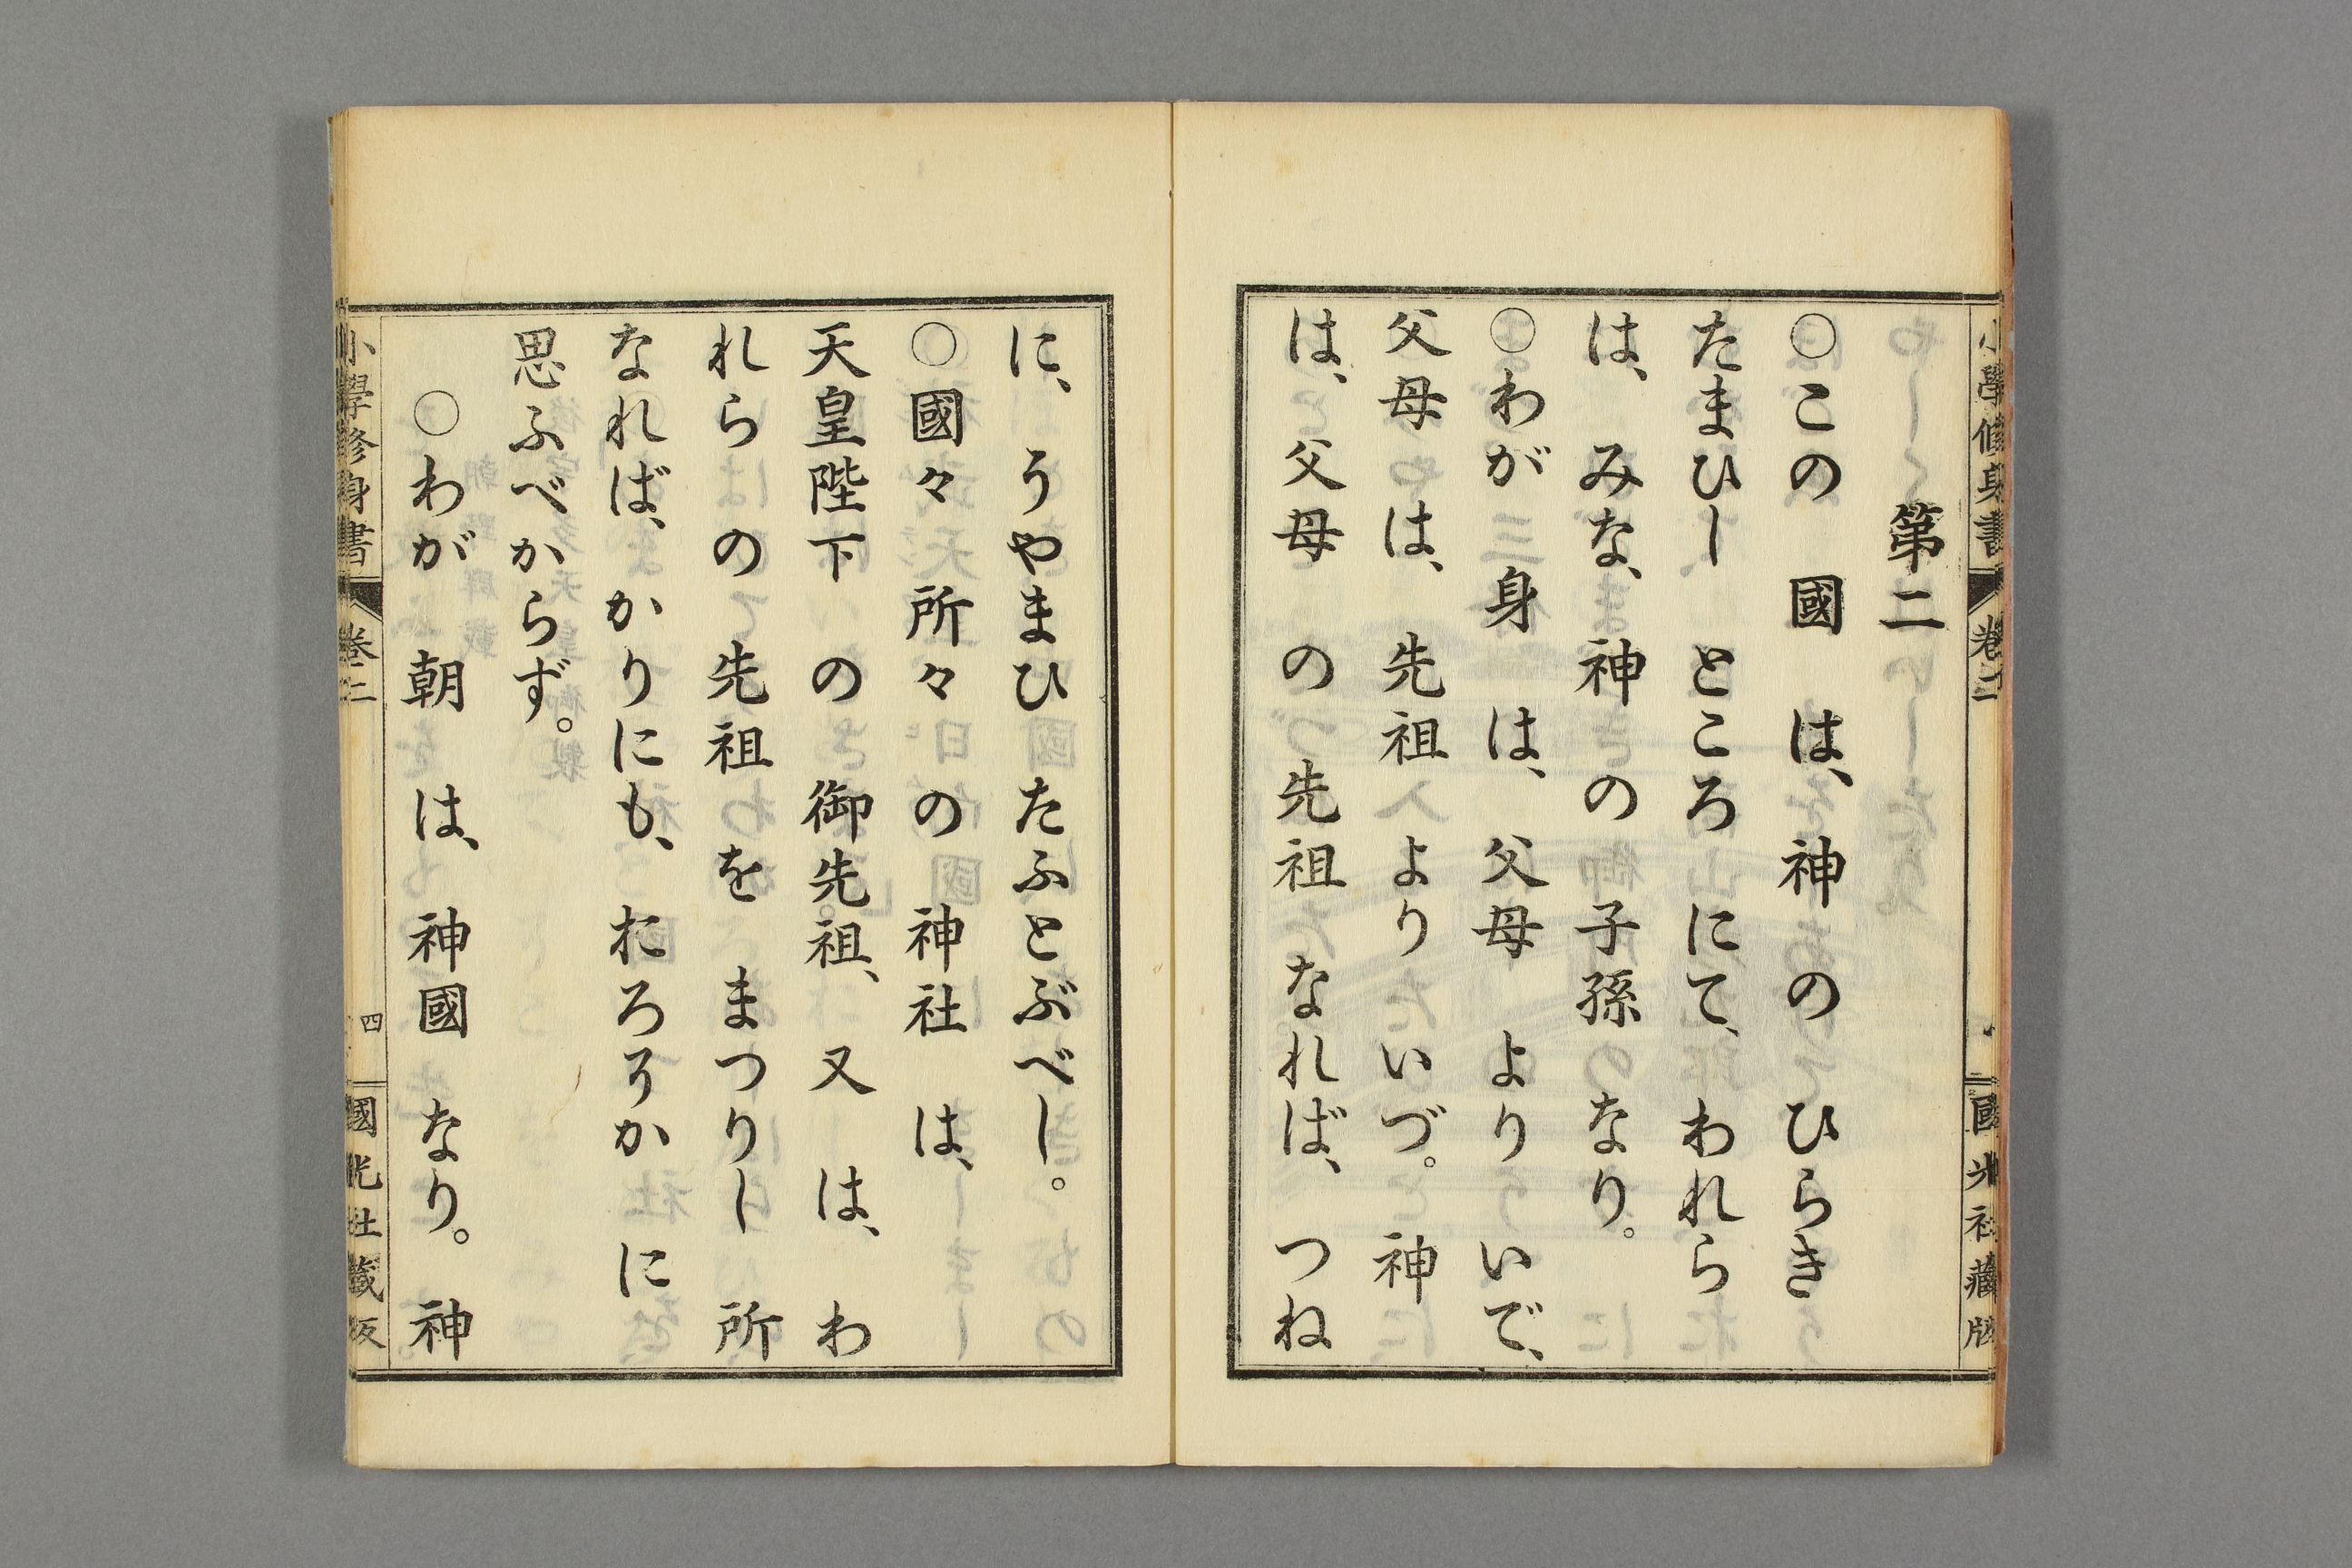 第二
○この 國 は、神 の ひらき
たまひし ところ にて、われら
は、みな、神 の 子孫 のなり。
○わが 身 は、父母 より いで、
父母 は、先祖 より いづ。神
は、父母 の 先祖 なれば、つね
に、うやまひ たふとぶべし。
○國々 所々 の 神社 は、
天皇陛下 の 御先祖、又 は、わ
れら の 先祖 を まつりし 所
なれば、かりにも、おろそか に
思ふべからず。
○わが 朝 は、神國 なり。神
小學修身書 卷二 四 國光社藏版